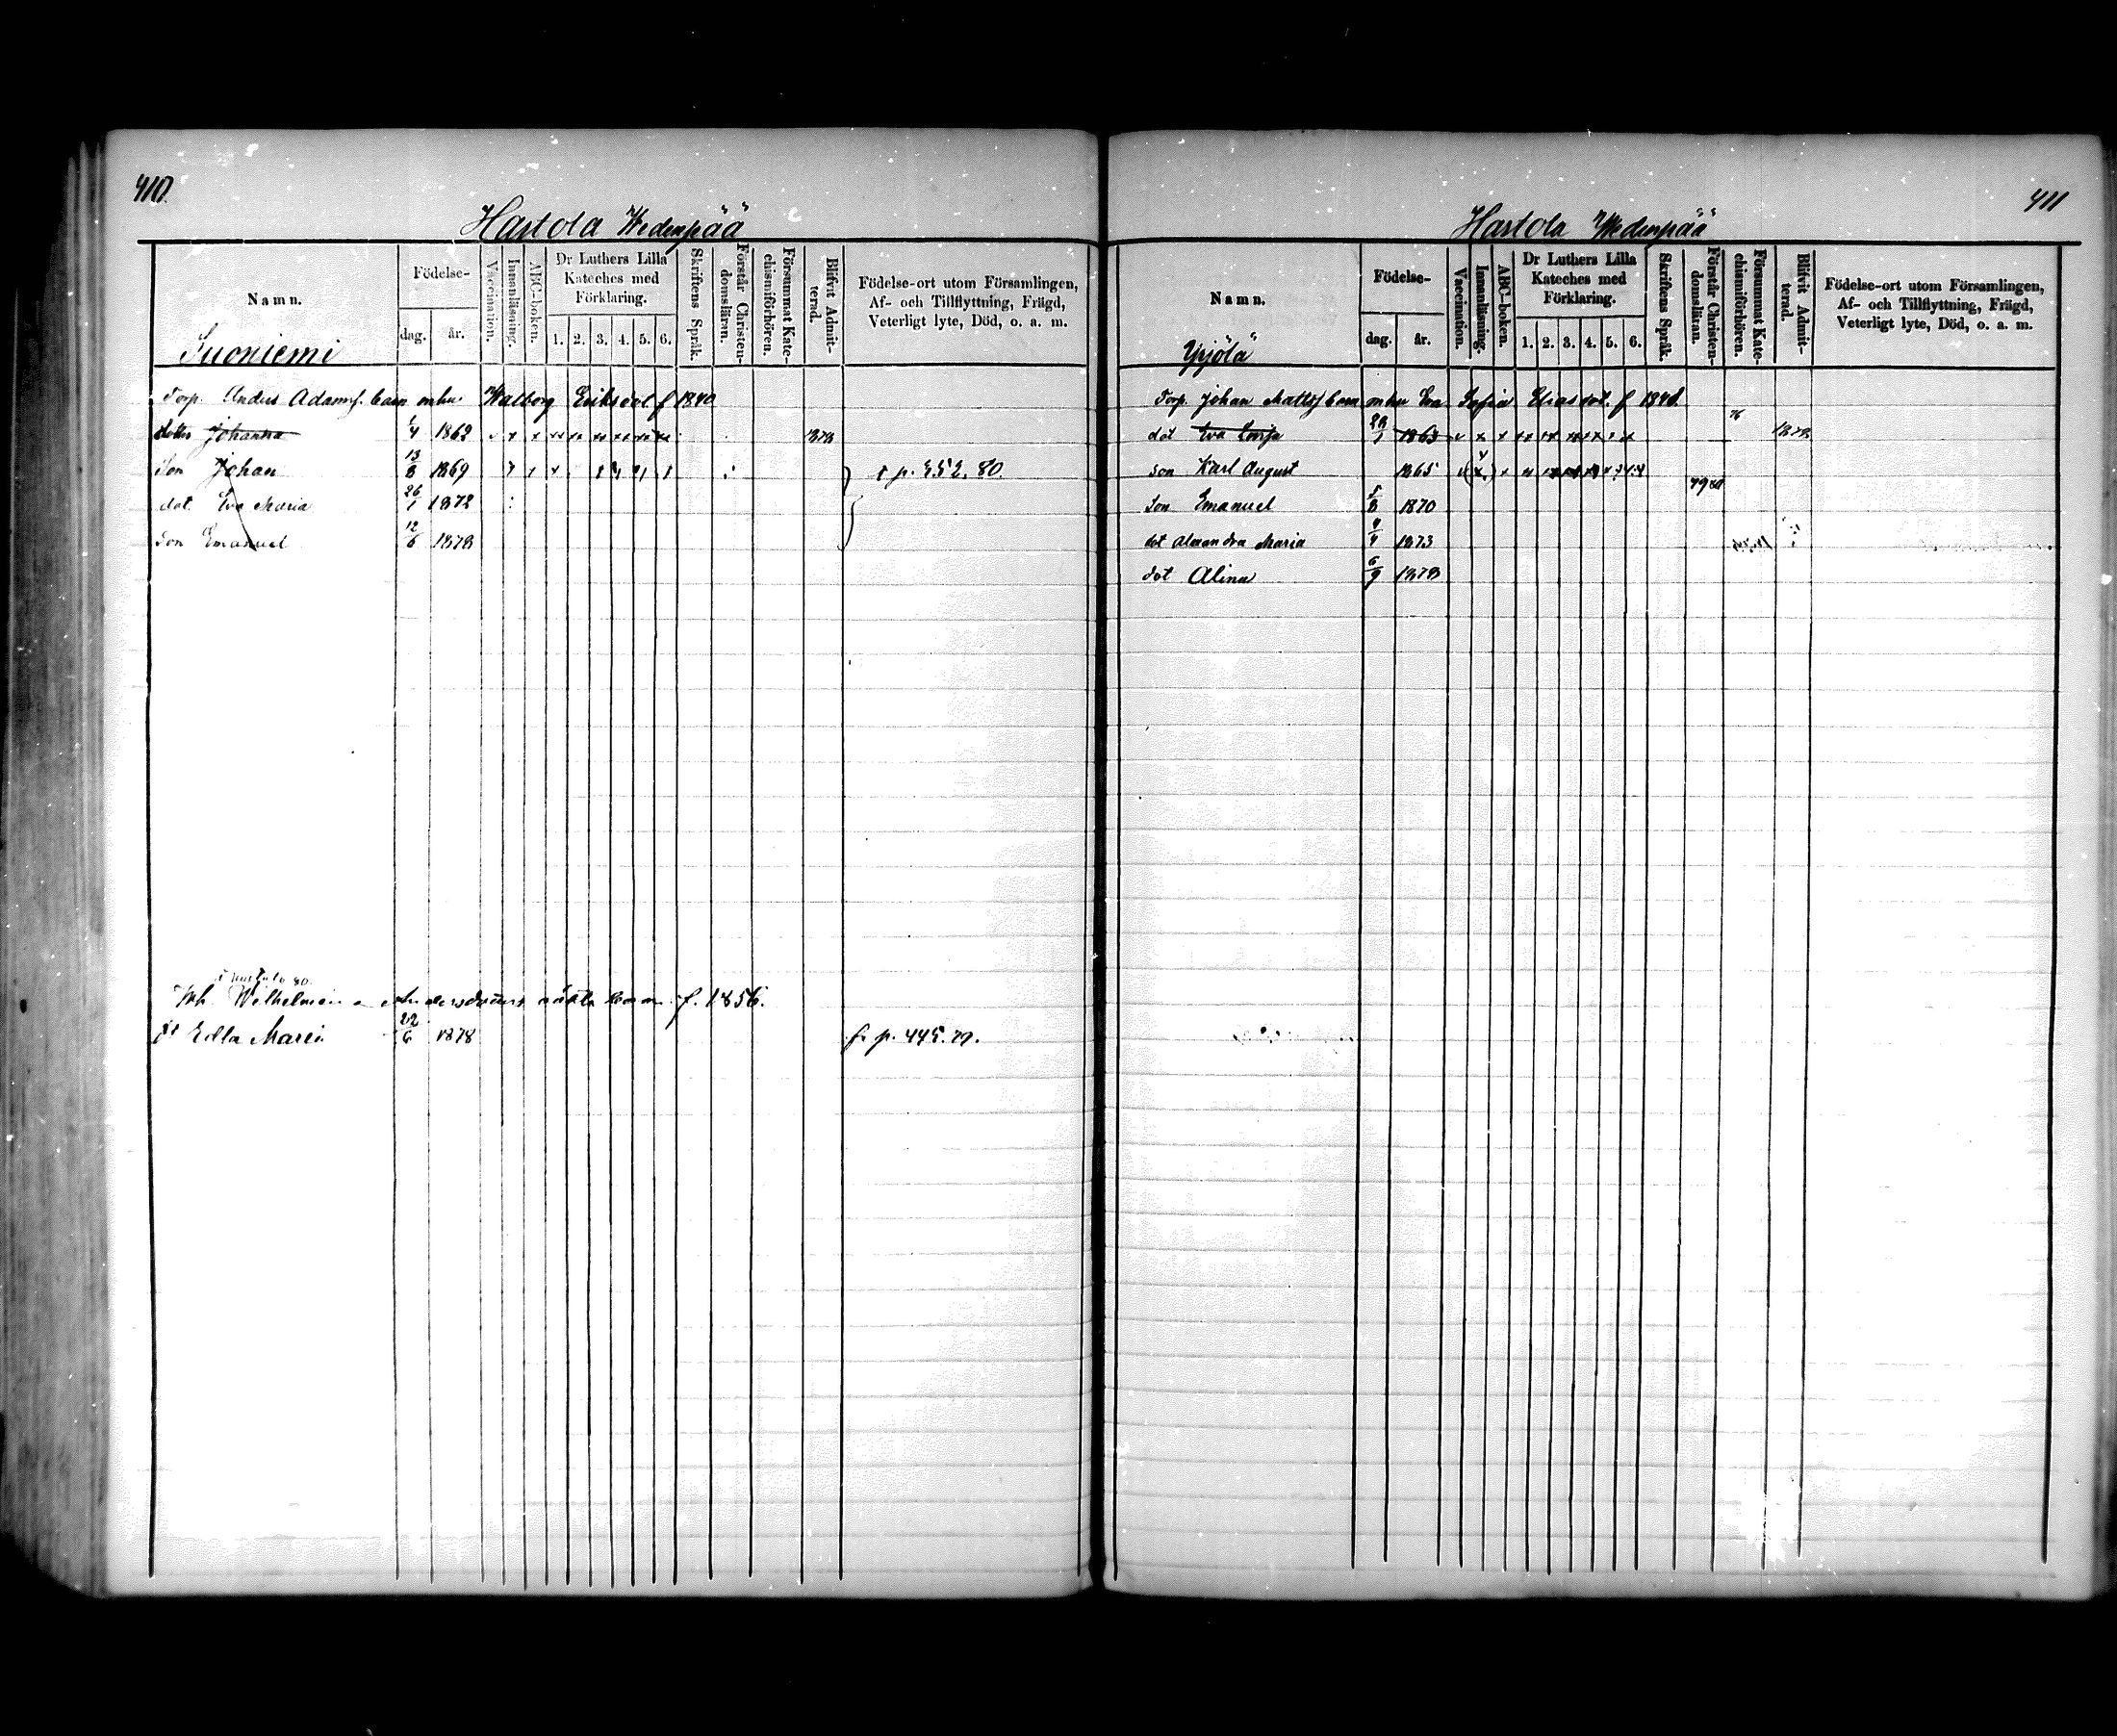 410.
Hastola Wedenpää
Namn.
Födelse-
dag.
år.
Vaccination.
Innanläsning.
ABC-boken.
Dr Luthers Lilla
Kateches med
Förklaring.
1. 2. 3. 4. 5. 6.
Skriftens Språk.
Förstår Christen-
domsläran.
Försummat Kate-
chismiförhören.
Blifvit Admit-
terad.
Födelse-ort utom Församlingen,
Af- och Tillflyttning, Frägd,
Veterligt lyte, Död, o. a. m.
Suoniemi
Torp. Anders Adamss. barn m hu Walborg Eriksdot f 1840
Johanna 1/4 1862 1878
Son Johan 13/8 1869 p. 352. 80.
dot Eva Maria 26/1 1872
Son Emanuel 12/6 1878
Wilhelmina Andersdotters oäkta barn f. 1856.
Edla Maria 22/6 1878 fr p. 445. 79.
411
Hastola Wedenpää
Namn.
Födelse-
dag.
år.
Vaccination.
Innanläsning.
ABC-boken.
Dr Luthers Lilla
Kateches med
Förklaring.
1. 2. 3. 4. 5. 6.
Skriftens Språk.
Förstår Christen-
domsläran.
Försummat Kate-
chismiförhören.
Blifvit Admit-
terad.
Födelse-ort utom Församlingen,
Af- och Tillflyttning, Frägd,
Veterligt lyte, Död, o. a. m.
Yrjölä
Torp. Johan Mattss barn m hu Eva Sofia Eliasdot. f 1840.
dot Eva 1863 76 1878
son Karl August 1865 79 80
Son Emanuel 5/8 1870
dot Alexandra Maria 4/4 1873
dot Alina 6/9 1878